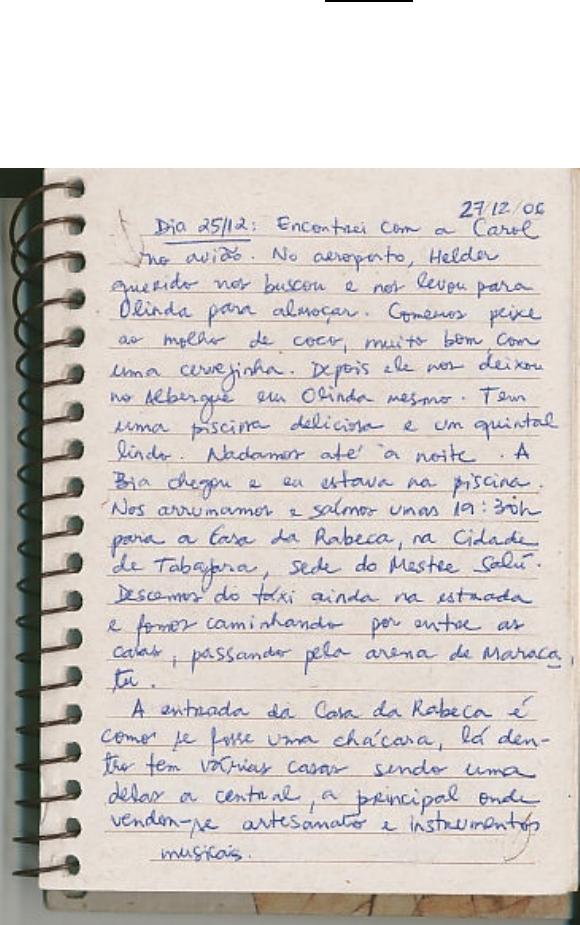 27/12/06
Dia 25/12: Encontrei com a Carol
no avião. No aeroporto, Helder
querido nos buscou e nos levou para
Olinda para almoçar. Comemos peixe
ao molho de coco, muito bom com
uma cervejinha. Depois ele nos deixou
no Albergue em Olinda mesmo. Tem
uma piscina deliciosa e um quintal
lindo. Nadamos até a noite. A
Bia chegou e eu estava na piscina.
Nos arrumamos e saímos umas 19:30h
para a Casa da Rabeca, na Cidade
de Tabajara, sede do Mestre Salú.
Descemos do táxi ainda na estrada
e fomos caminhando por entre as
casas, passando pela arena de Maraca
tu.
A entrada da Casa da Rabeca é
como se fosse uma chácara, lá den-
tro tem várias casas sendo uma
delas a central, a principal onde
vendem-se artesanato e instrumentos
musicais.